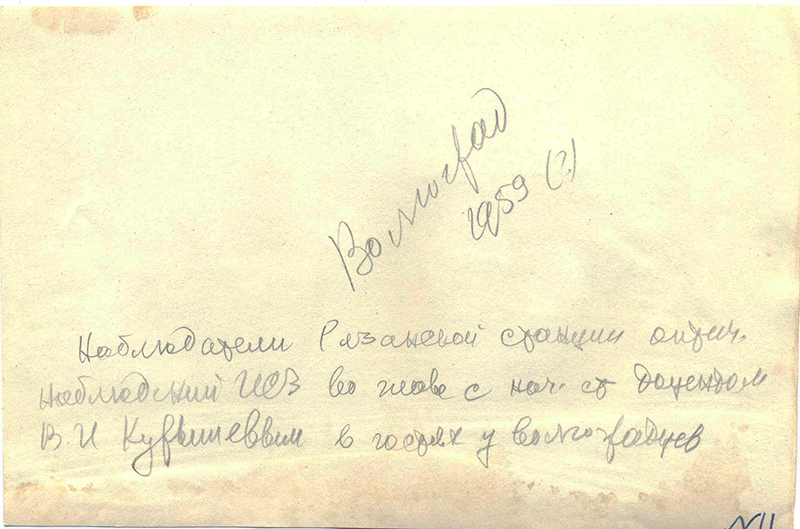 Волгоград
1959 (?)
Наблюдатели Рязанской станции оптич.
наблюдений ИСЗ во главе с нач. ст доцентом
В. И Курышеввым в гостях у волгоградцев